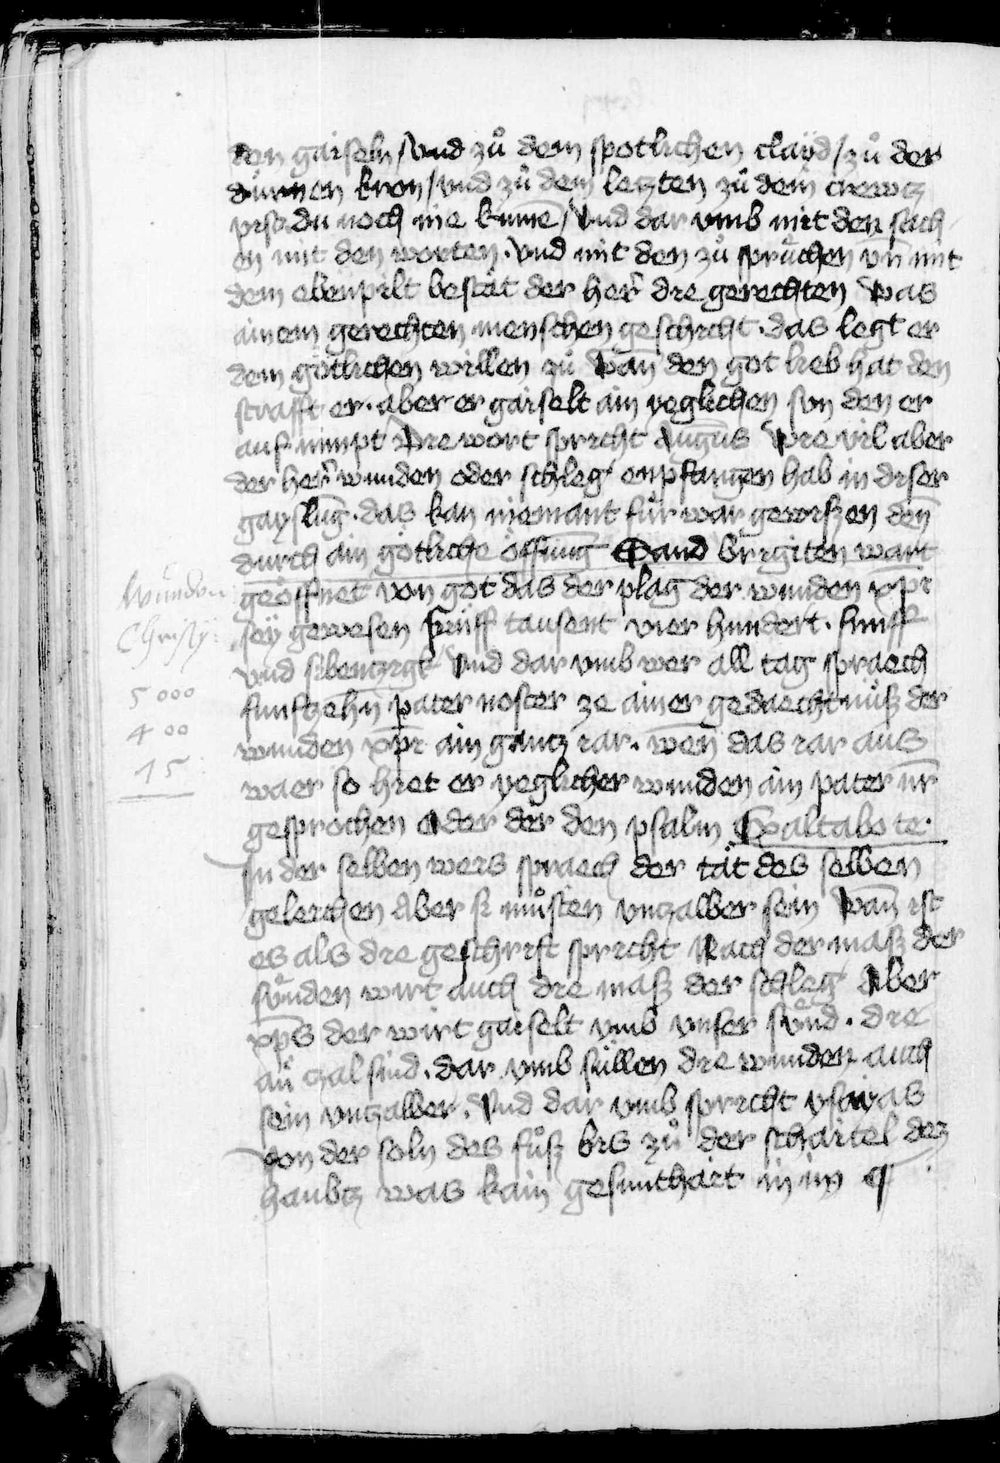 den gaiseln / vnd zů dem spotlichen clayd / zů der
dürnen kron / vnd zů dem letzten zů dem crewtz
pist du noch nie kumē / Vnd dar vmb mit den sach
en mit den worten. Vnd mit den zů sprüchen vn̄ mit
dem ebenpilt bestät der her̄ die gerechten Was
ainem gerechten menschen geschicht. das legt er
dem götlichen willen zů Wan̄ den got lieb hat den
strafft er. aber er gaiselt ain yeglichen sun den er
auf nimpt Die wort spricht Augꝰs Wie vil aber
der her̄ wunden oder schleg enpfangen hab in diser
gayslūg. das kan niemant für war gewissen den̄
durch ain götliche öffnūg Sand birgiten wart
geöffnet von got das der plag der wunden xp̄i
Wunden
Christy:
5000
400
15
sey gewesen fünff tausent vier hundert. funff
vnd sibentzigk Vnd dar vmb wer all tag spraech
funftzehn pater noster ze ainer gedaechtnüsz der
wunden xp̄i ain gantz iar. wen̄ das iar aus
waer so hiet er yeglicher wunden ain pater nr̄
gesprochen Oder der den psalm Exaltabo te.
In der selben weis spraech der tät des selben
geleichen Aber si müsten vnzalber sein Wan̄ ist
es als die geschrift spricht Nach der masz der
sünden wirt auch die masz der schleg Aber
xp̄s der wirt gaiselt vmb vnser sünd. die
an̄ zal sind. dar vmb süllen die wunden auch
sein vnzalber. Vnd dar vmb spricht ysayas
Von der soln des fůsz bis zů der schaitel dez
haubtz was kain gesunthait in im ¶